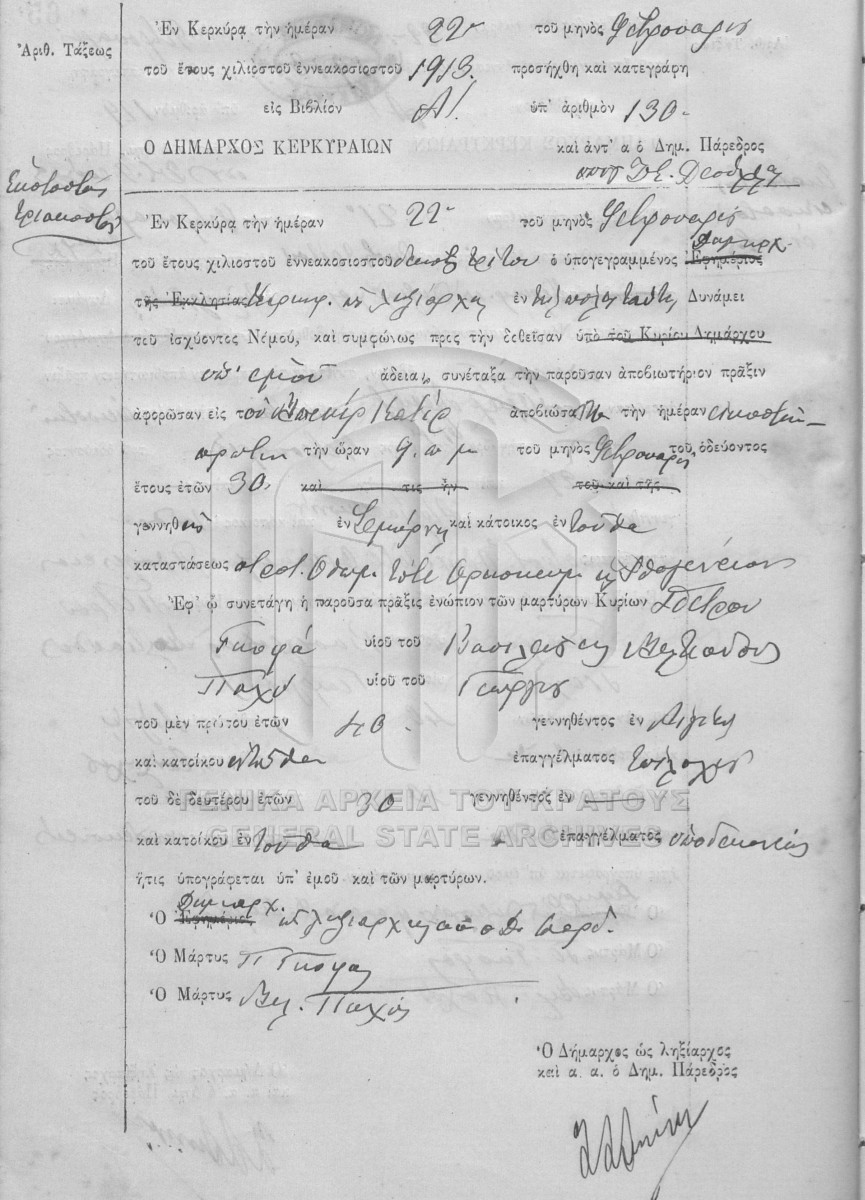 Ἐν Κερκύρᾳ τὴν ἡμέραν 22αν τοῦ μηνὸς Φεβρουαρίου
Ἀριθ. Τάξεως
τοῦ ἔτους χιλιοστοῦ ἐννεακοσιοστοῦ 1913. προσήχθη καὶ κατεγράφη
εἰς Βιβλίον Α΄. ὑπ' ἀριθμὸν 130
Ο ΔΗΜΑΡΧΟΣ ΚΕΡΚΥΡΑΙΩΝ καὶ ἀντ' α ὁ Δημ. Πάρεδρος
Ἑκατοστὸς
τριακοστὸς
Ἐν Κερκύρᾳ τὴν ἡμέραν 22αν τοῦ μηνὸς Φεβρουαρίου
τοῦ ἔτους χιλιοστοῦ ἐννεακοσιοστοῦ δεκάτου τρίτου ὁ ὑπογεγραμμένος Ἐφημέριος Δήμαρχ.
τῆς Ἐκκλησίας Κερκυρ. ὡς ληξίαρχος ἐν τῇ πόλει ταύτῃ Δυνάμει
τοῦ ἰσχύοντος Νόμου, καὶ συμφώνως πρὸς τὴν δοθεῖσαν ὑπὸ τοῦ Κυρίου Δημάρχου
ὑπ' ἐμοῦ ἄδειαν, συνέταξα τὴν παροῦσαν ἀποβιωτήριον πρᾶξιν
ἀφορῶσαν εἰς τὸν Βεκὴρ Κατὶρ ἀποβιώσαντα τὴν ἡμέραν εἰκοστὴν
πρώτην τὴν ὥραν 9 π μ τοῦ μηνὸς Φεβρουαρίου τοῦ ὁδεύοντος
ἔτους ἐτῶν 30 καὶ τις ἦν τοῦ καὶ τῆς
γεννηθεὶς ἐν Σμύρνῃ καὶ κάτοικος ἐνταῦθα
καταστάσεως στρ. Ὀθωμ.
Ἐφ' ᾧ συνετάγη ἡ παροῦσα πρᾶξις ἐνώπιον τῶν μαρτύρων Κυρίων Πέτρου
Γκοφᾶ υἱοῦ τοῦ Βασιλείου
Παχῦ υἱοῦ τοῦ Γεωργίου
τοῦ μὲν πρώτου ἐτῶν 40 γεννηθέντος ἐν
καὶ κατοίκου ἐνταῦθα ἐπαγγέλματος
τοῦ δὲ δευτέρου ἐτῶν 30 γεννηθέντος ἐν
καὶ κατοίκου ἐνταῦθα ἐπαγγέλματος ὑποδεκανεὺς
ἥτις ὑπογράφεται ὑπ' ἐμοῦ καὶ τῶν μαρτύρων.
Ὁ Ἐφημέριος Δήμαρχ. ὡς ληξίαρχος
Ὁ Μάρτυς Π Γκοφας
Ὁ Μάρτυς Παχύς
Ὁ Δήμαρχος ὡς ληξίαρχος
καὶ α. α. ὁ Δημ. Πάρεδρος
ΓΕΝΙΚΑ ΑΡΧΕΙΑ ΤΟΥ ΚΡΑΤΟΥΣ
GENERAL STATE ARCHIVES